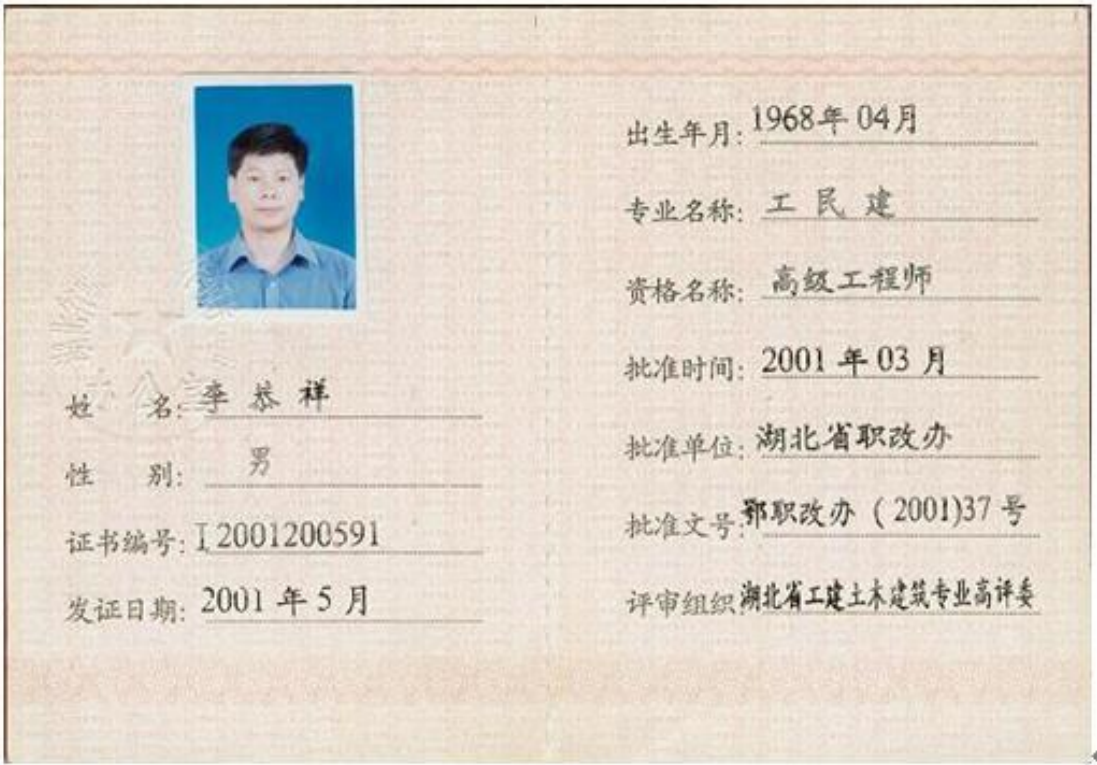 姓 名: 李恭祥
性 别: 男
证书编号: I2001200591
发证日期: 2001年5月
出生年月: 1968年04月
专业名称: 工民建
资格名称: 高级工程师
批准时间: 2001年03月
批准单位: 湖北省职改办
批准文号: 鄂职改办(2001)37号
评审组织 湖北省工建土木建筑专业高评委